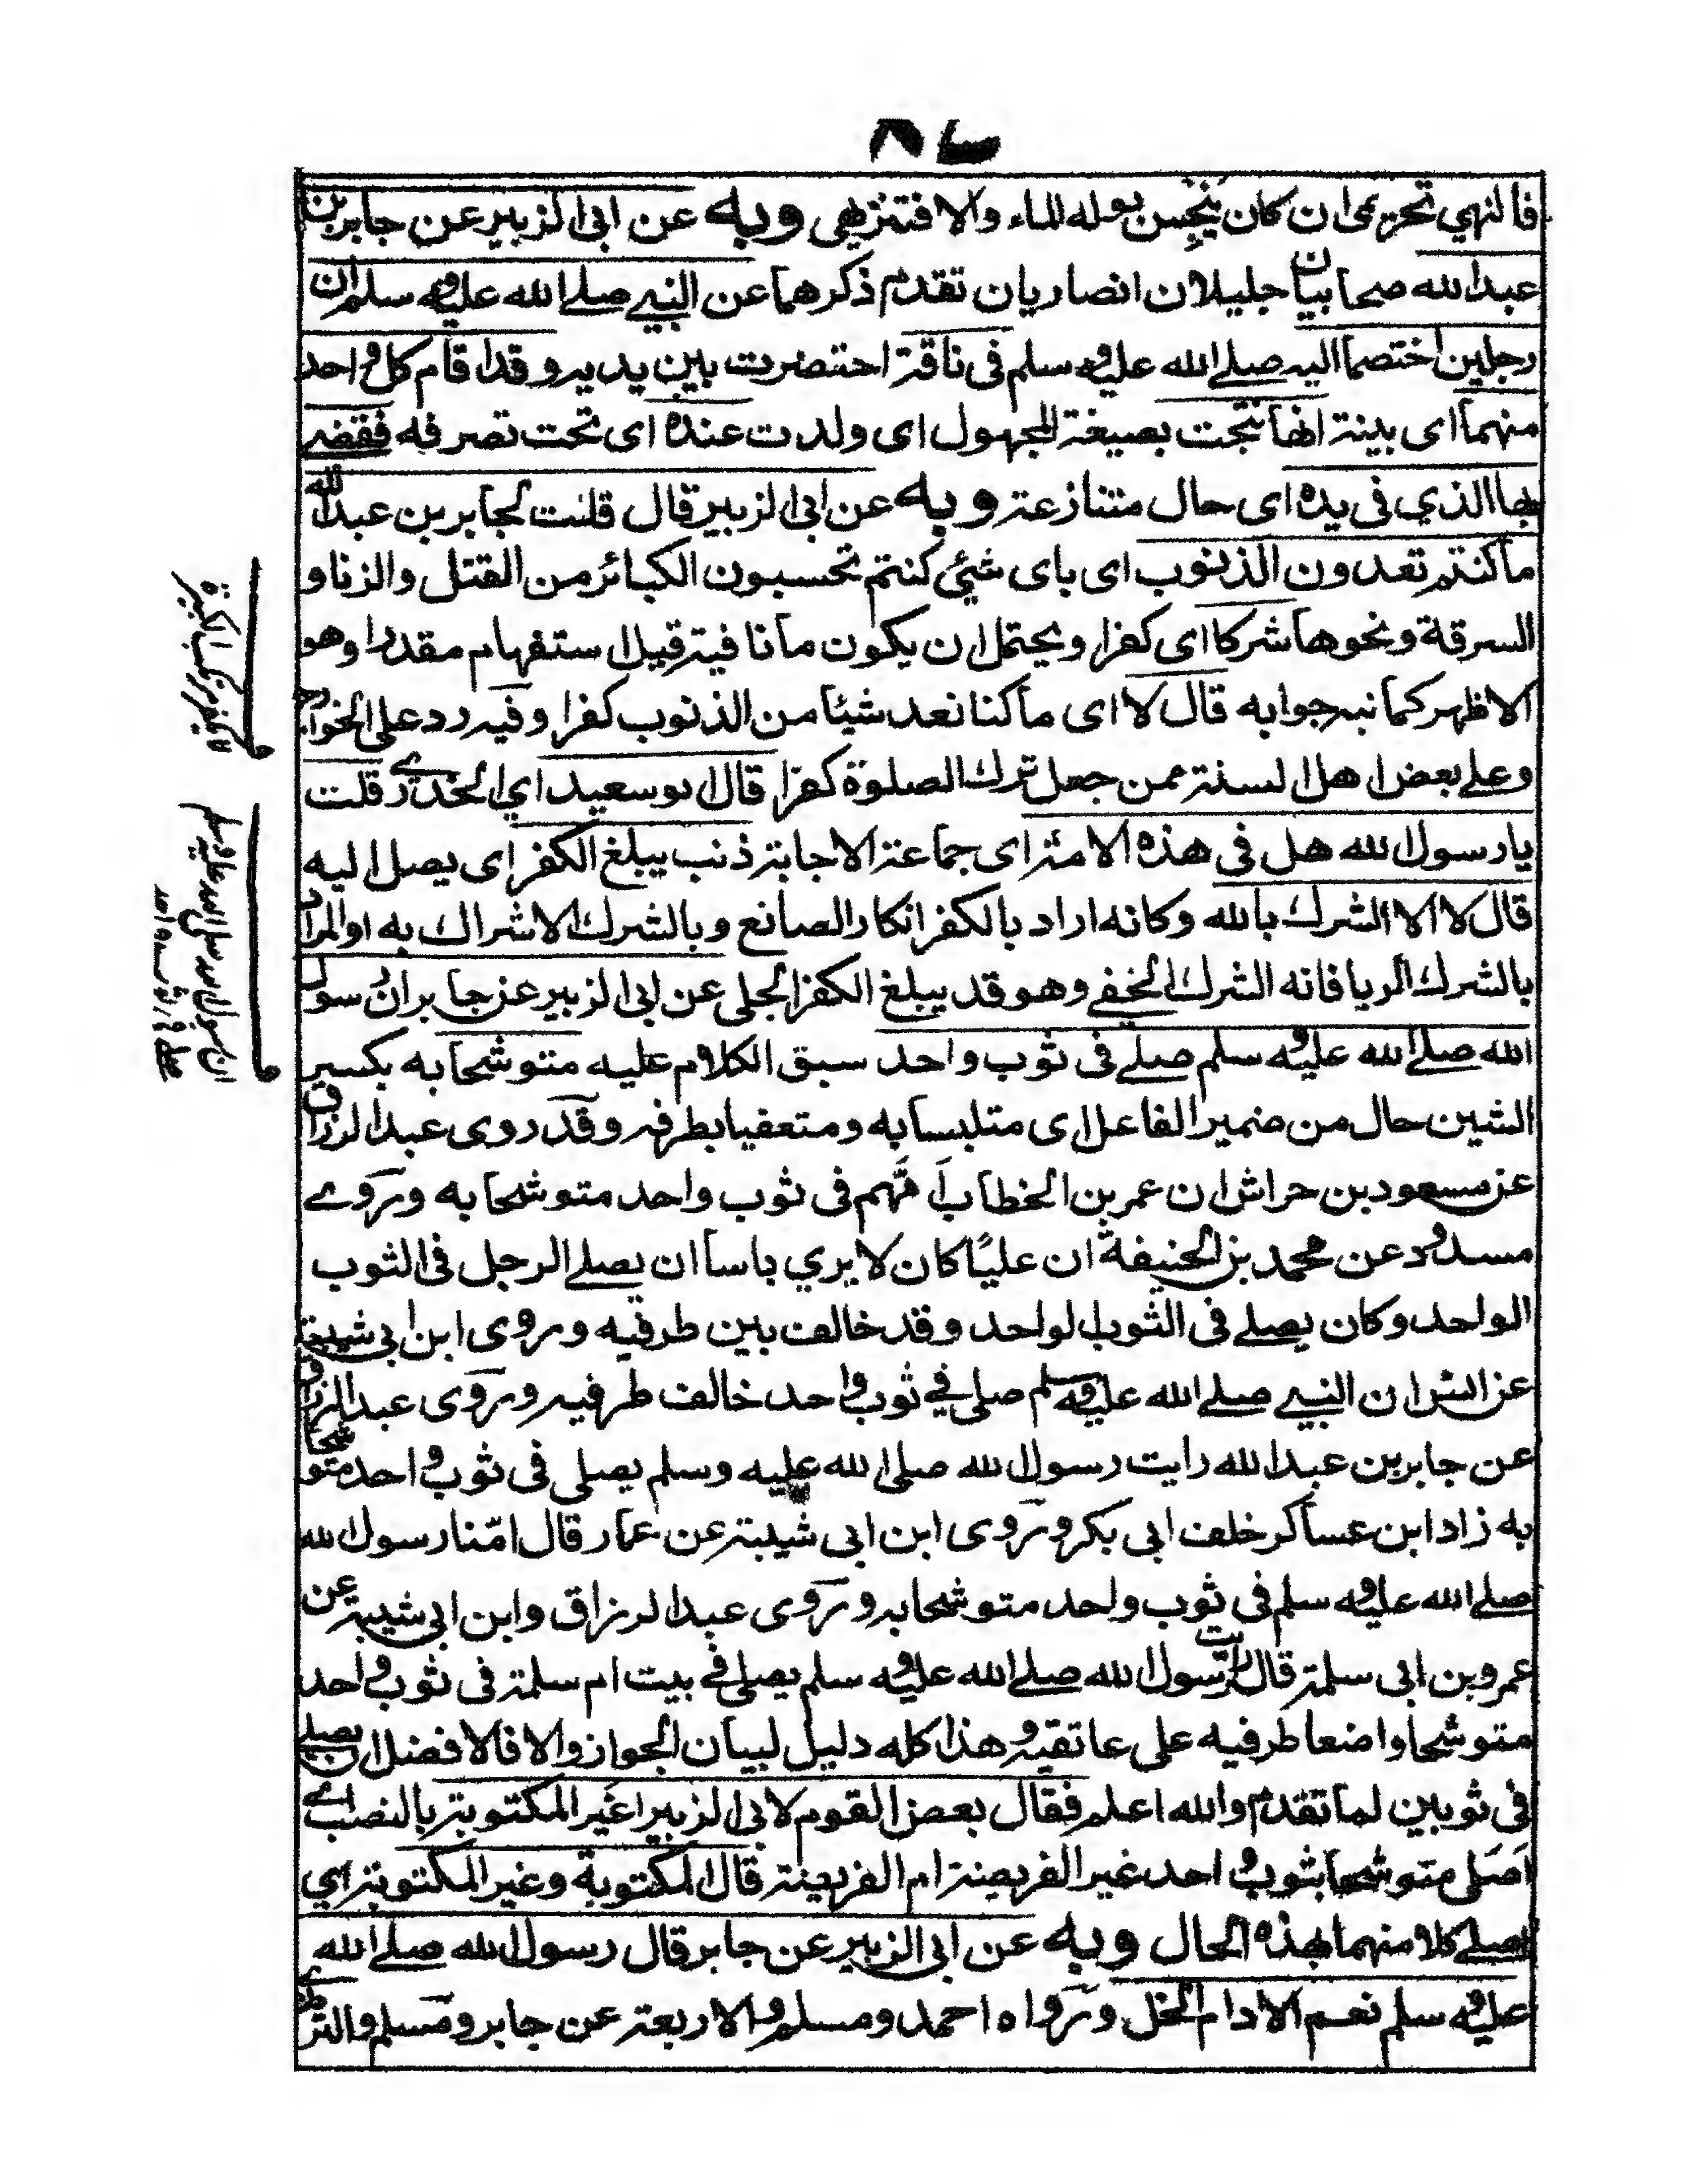 فالنهي تحريمى ان كان ينجس بوله للماء والا فتنزيهى وبه عن ابى الزبير عن جابر بن
عبدالله صحابيان جليلان انصاريان تقدم ذكرهما عن النبي صلى الله عليه وسلم ان
رجلين اختصما اليه صلى الله عليه وسلم فى ناقة احتضرت بين يديه وقد اقام كل واحد
منهما اى بينة انها نتجت بصيغة المجهول اى ولدت عنده اى تحت تصرفه فقضى
بها الذي فى يده اى حال متنازعة وبه عن ابى الزبير قال قلت لجابر بن عبدالله
ما كنتم تعدون الذنوب اى باى شيئ كنتم تحسبون الكبائر من القتل والزنا و
السرقة ونحوها شركا اى كفرا ويحتمل ان يكون ما نافية قيل استفهام مقدرا وهو
الاظهر كما نبه جوابه قال لا اى ما كنا نعد شيئا من الذنوب كفرا وفيه رد على الخوارج
وعلى بعض اهل السنة ممن جعل ترك الصلوة كفرا قال ابو سعيد اي الخدري قلت
يا رسول الله هل فى هذه الامة اى جماعة الاجابة ذنب يبلغ الكفر اى يصل اليه
قال لا الا الشرك بالله وكانه اراد بالكفر انكار الصانع وبالشرك الاشراك به او المراد
بالشرك الريا فانه الشرك الخفى وهو قد يبلغ الكفر الجلى عن ابى الزبير عن جابر ان رسول
الله صلى الله عليه وسلم صلى فى ثوب واحد سبق الكلام عليه متوشحا به بكسر
الشين حال من ضمير الفاعل اى متلبسا به ومتعفيا بطرفه وقد روى عبد الرزاق
عن مسعود بن حراش ان عمر بن الخطاب أمّهم فى ثوب واحد متوشحا به وروى
مسدد وعن محمد بن الحنيفة ان عليًا كان لا يري باسا ان يصلى الرجل فى الثوب
الواحد وكان يصلى فى الثوب لواحد وقد خالف بين طرفيه وروى ابن ابى شيبة
عن انس ان النبي صلى الله عليه وسلم صلى في ثوب واحد خالف طرفيه وروى عبد الرزاق
عن جابر بن عبدالله رايت رسول الله صلى الله عليه وسلم يصلى فى ثوب واحد متوشحا
به زاد ابن عساكر خلف ابى بكر وروى ابن ابى شيبة عن عمار قال امّنا رسول الله
صلى الله عليه وسلم فى ثوب واحد متوشحا به وروى عبد الرزاق وابن ابى شيبة عن
عمرو بن ابى سلمة قال رايت رسول الله صلى الله عليه وسلم يصلى فى بيت ام سلمة فى ثوب واحد
متوشحا واضعا طرفيه على عاتقيه وهذا كله دليل لبيان الجواز والا فالافضل ان يصلى
فى ثوبين لما تقدم والله اعلم فقال بعض القوم لابى الزبير اغير المكتوبة بالنصب اى
اصلى متوشحا بثوب واحد غير الفريضة ام الفريضة قال المكتوبة وغير المكتوبة اي
اصلى كلا منهما بهذه الحال وبه عن ابى الزبير عن جابر قال رسول الله صلى الله
عليه وسلم نعم الادام الخل ورواه احمد ومسلم والاربعة عن جابر ومسلم والترمذي